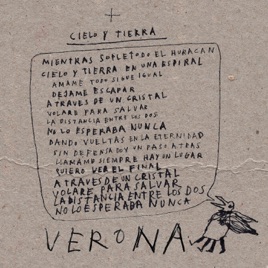 CIELO Y TIERRA
MIENTRAS SOPLE TODO EL HURACAN
CIELO Y TIERRA EN UNA ESPIRAL
AMAME TODO SIGUE IGUAL
DEJAME ESCAPAR
ATRAVES DE UN CRISTAL
VOLARE PARA SALVAR
LA DISTANCIA ENTRE LOS DOS
NO LO ESPERABA NUNCA
DANDO VUELTAS EN LA ETERNIDAD
SIN DEFENSA DOY UN PASO ATRAS
LLAMAME SIEMPRE HAY UN LUGAR
QUIERO VER EL FINAL
ATRAVES DE UN CRISTAL
VOLARE PARA SALVAR
LA DISTANCIA ENTRE LOS DOS
NO LO ESPERABA NUNCA
VERONA